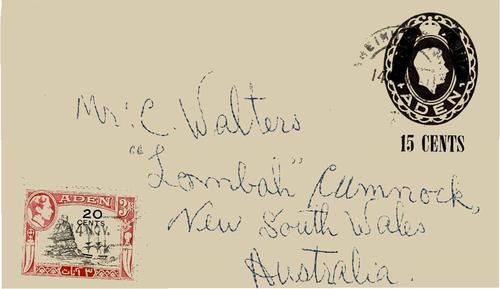 14
ADEN
15 CENTS
Mr. C. Walters
"Lombah" Cumnock,
New South Wales
Australia.
ADEN
20
CENTS
3
As